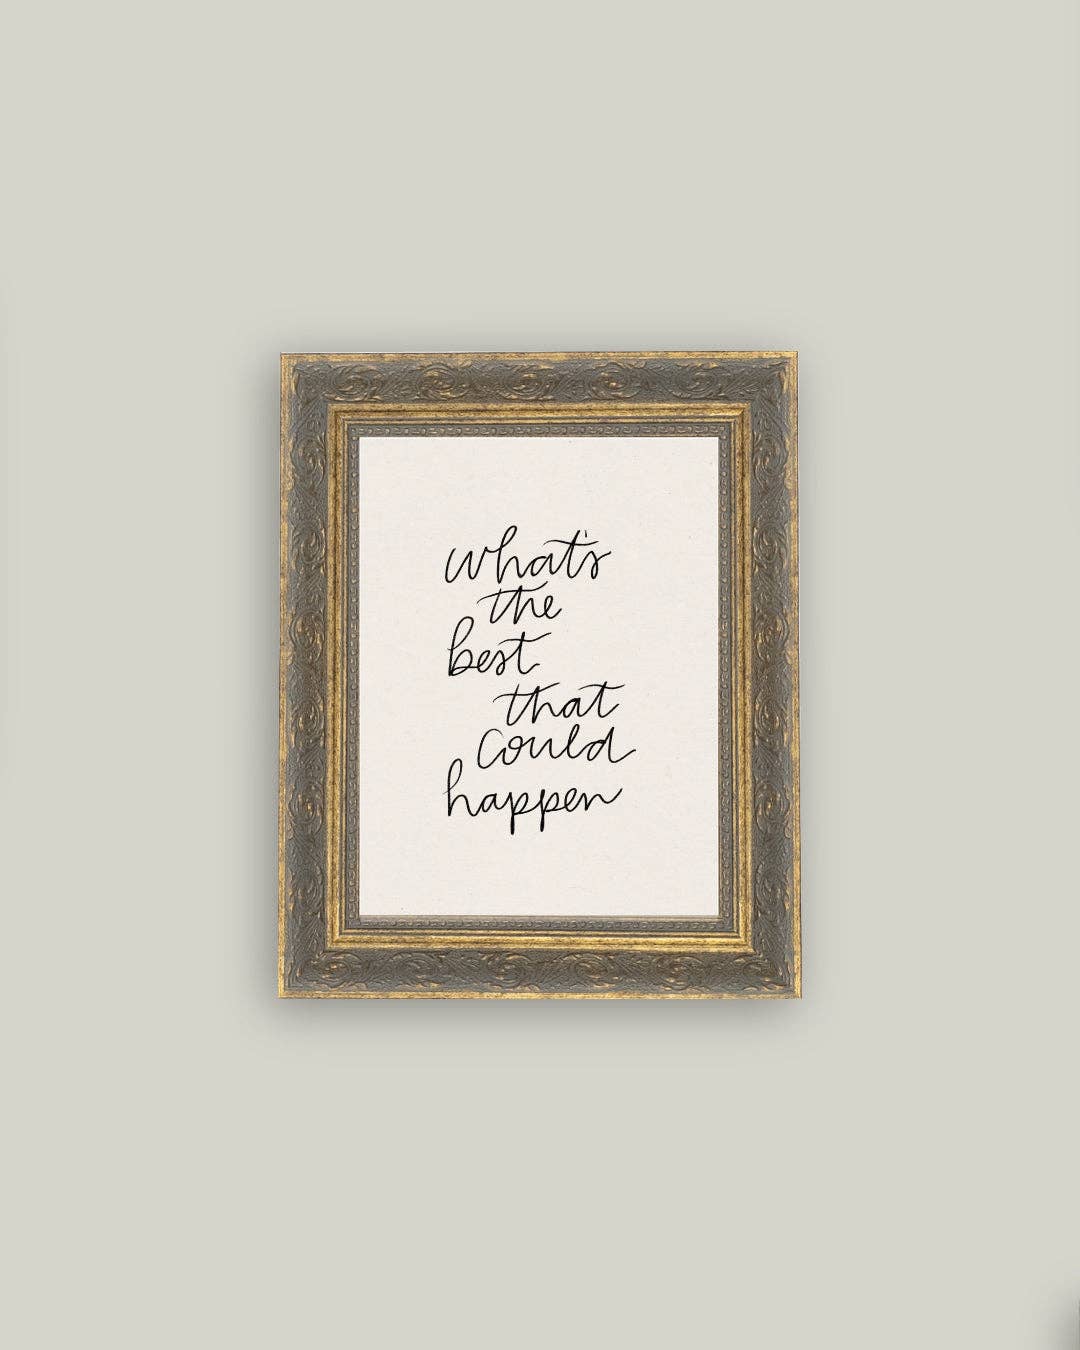 what's
the
best
that
could
happen